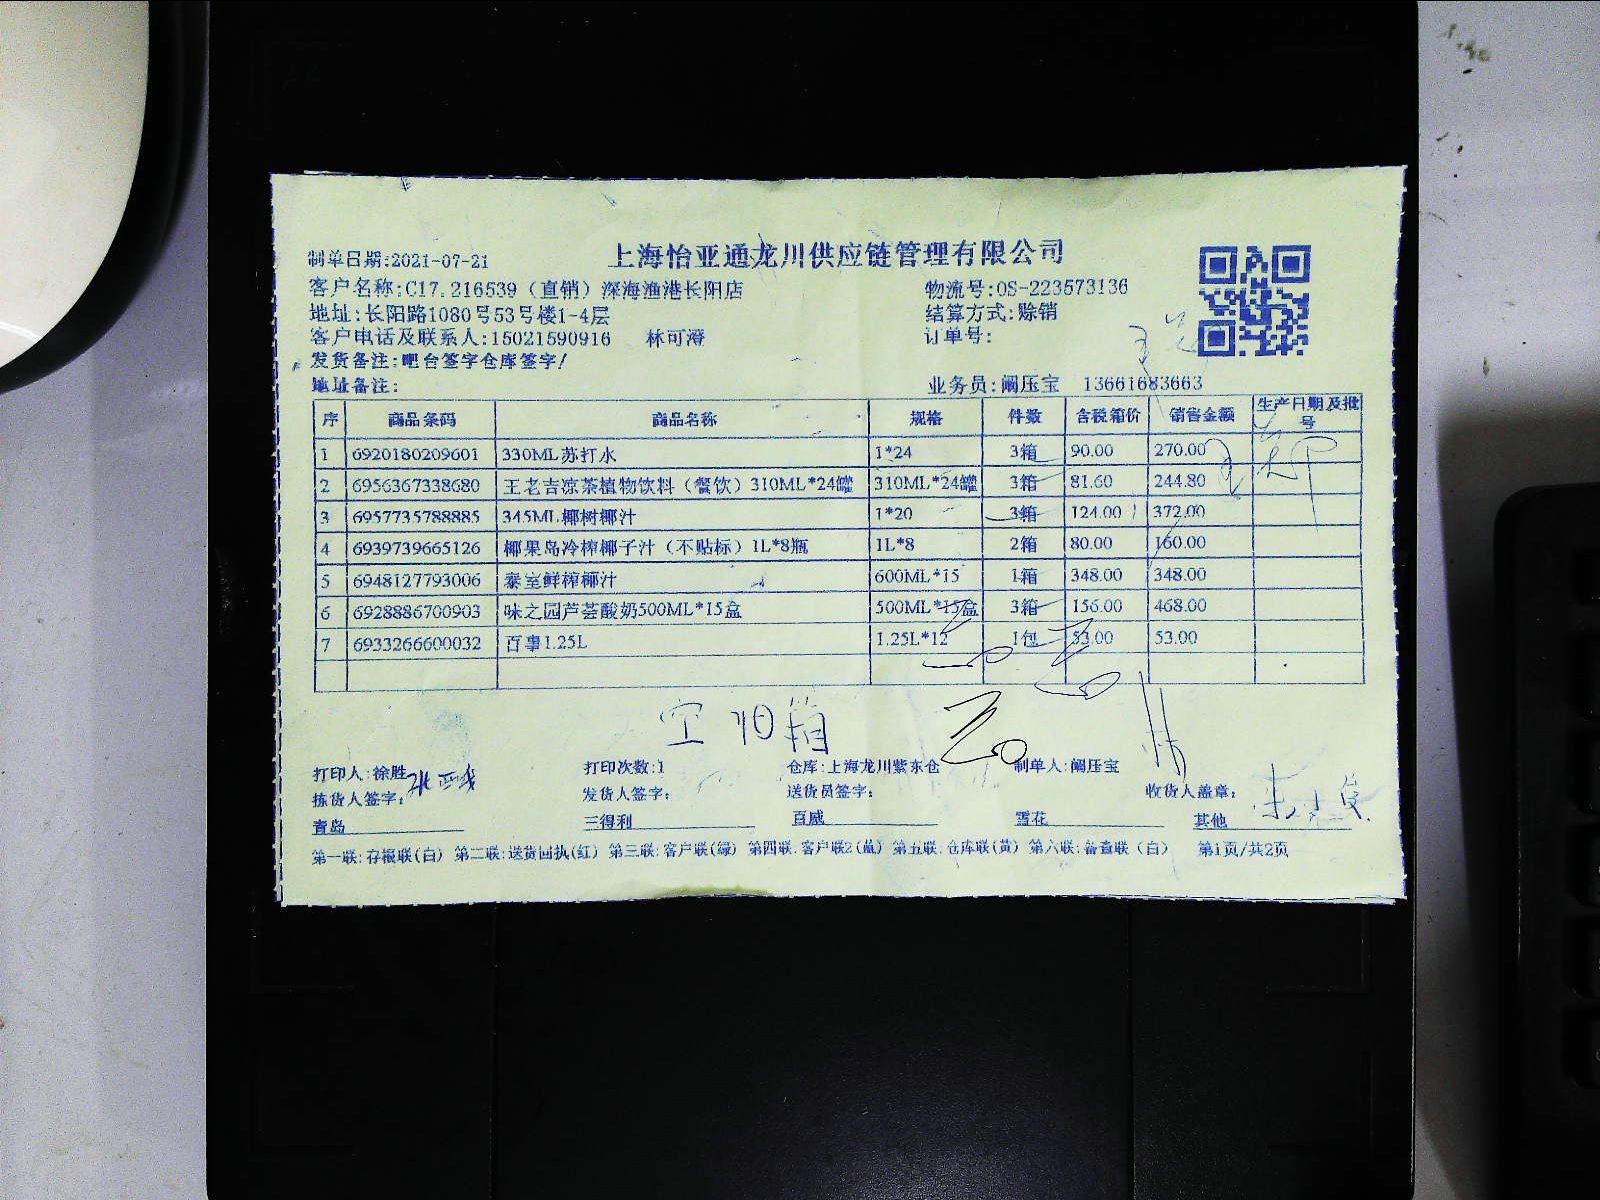 上海怡亚通龙川供应链管理有限公司
制单日期:2021-07-21
客户名称:C17.216539（直销）深海渔港长阳店 物流号:OS-223573136
地址:长阳路1080号53号楼1-4层 结算方式:赊销
客户电话及联系人:15021590916 林可澄 订单号:
发货备注:吧台签字仓库签字!
地址备注: 业务员:阚压宝 13661683663
序 商品条码 商品名称 规格 件数 含税箱价 销售金额 生产日期及批号
1 6920180209601 330ML苏打水 1*24 3箱 90.00 270.00
2 6956367338680 王老吉凉茶植物饮料（餐饮）310ML*24罐 310ML*24罐 3箱 81.60 244.80
3 6957735788885 345ML椰树椰汁 1*20 3箱 124.00 372.00
4 6939739665126 椰果岛冷榨椰子汁（不贴标）1L*8瓶 1L*8 2箱 80.00 160.00
5 6948127793006 泰室鲜榨椰汁 600ML*15 1箱 348.00 348.00
6 6928886700903 味之园芦荟酸奶500ML*15盒 500ML*15盒 3箱 156.00 468.00
7 6933266600032 百事1.25L 1.25L*12 1包 53.00 53.00
打印人:徐胜 打印次数:1 仓库:上海龙川紫东仓 制单人:阚压宝
拣货人签字: 发货人签字: 送货员签字: 收货人盖章:
青岛 三得利 百威 雪花 其他
第一联:存根联(白) 第二联:送货回执(红) 第三联:客户联(绿) 第四联:客户联2(蓝) 第五联:仓库联(黄) 第六联:备查联（白） 第1页/共2页